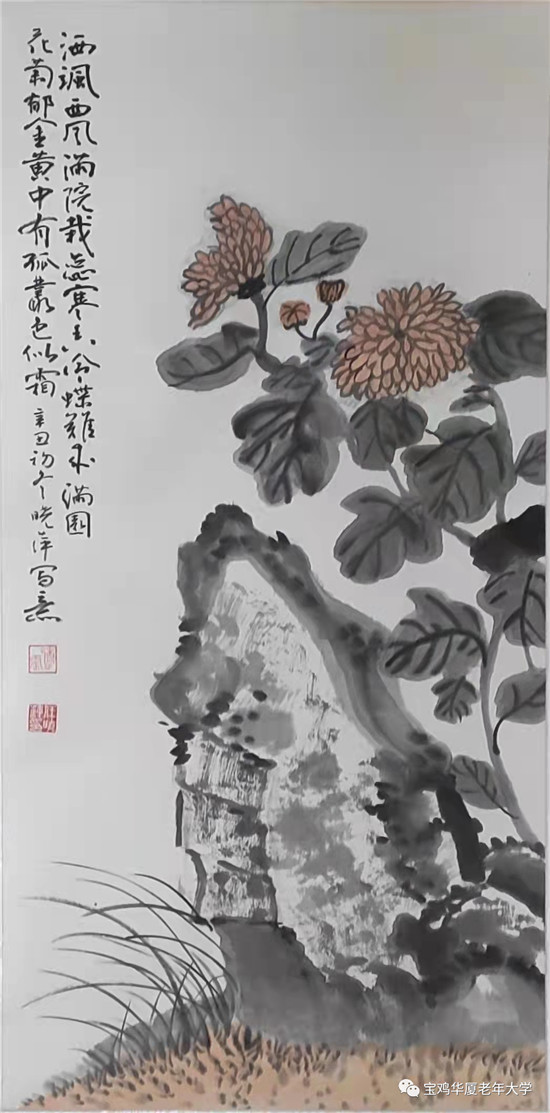 洒颯西风满院栽蕊寒香冷蝶难来满園
花菊郁金黄中有孤叢色似霜 辛丑初冬晓萍写意
宝鸡华厦老年大学